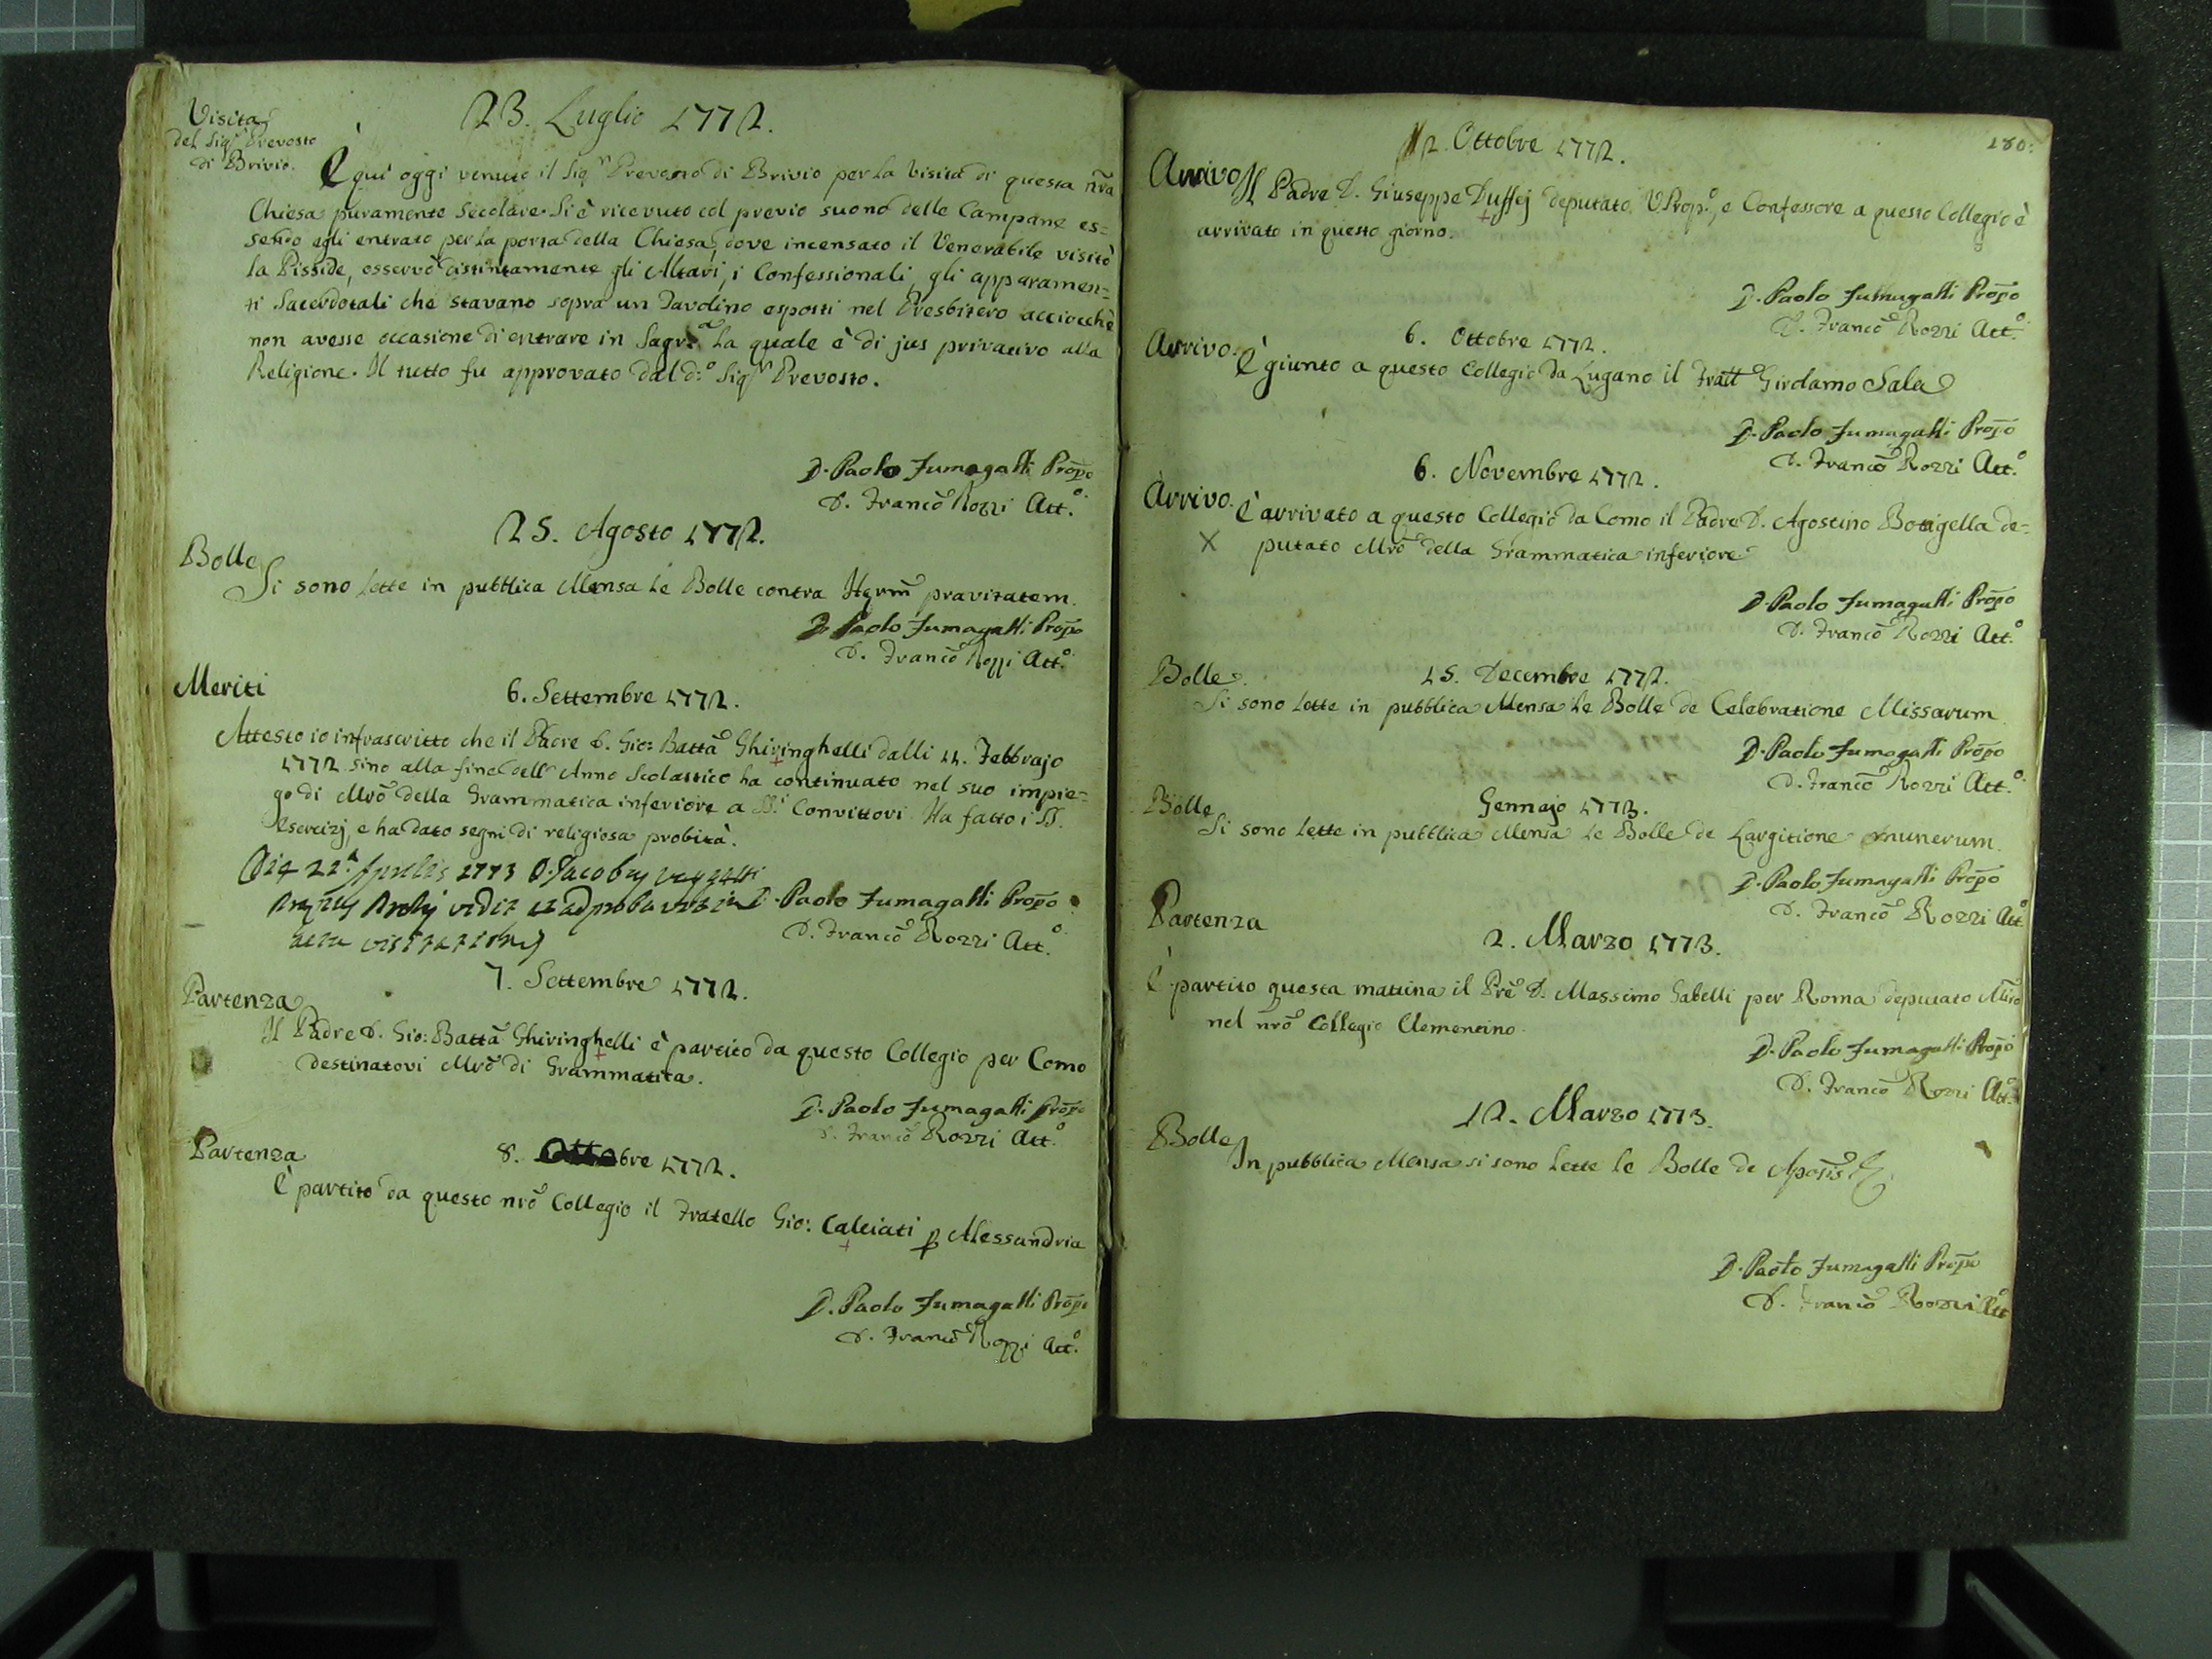 Visita
del Sigr Prevosto
di Brivio.
23. Luglio 1772.
È qui oggi venuto il Sigr Prevosto di Brivio per la Visita di questa nr̃a
Chiesa puramente Secolare. Si è ricevuto col previo suono delle Campane es=
sendo egli entrato per la porta della Chiesa, dove incensato il Venerabile visitò
la Pisside, osservò distintamente gli Altari, i Confessionali, gli apparamen=
ti Sacerdotali che stavano sopra un Tavolino esposti nel Presbitero acciocchè
non avesse occasione di entrare in Sagr.a la quale è di jus privativo alla
Religione. Il tutto fu approvato dal d.o Sigr Prevosto.
D. Paolo Fumagalli Prop̃o
D. Franc̃o Rozzi Att.o
25. Agosto 1772.
Bolle
Si sono lette in pubblica Mensa le Bolle contra Hqrm̃ pravitatem.
D. Paolo Fumagalli Prop̃o
D. Franc̃o Rozzi Att.o
Meriti
6. Settembre 1772.
Attesto io infrascritto che il Padre D. Gio: Battã Ghiringhelli dalli 11. Febbrajo
1772 sino alla fine dell' Anno Scolastico ha continuato nel suo impie=
go di Mrõ della Grammatica inferiore a SS.i Convittori. Ha fatto i SS.
Esercizj, e ha dato segni di religiosa probità.
Die 22.a Aprilis 1773 D. Jacobus
vidit et adprobavit in
actu visitationis
D. Paolo Fumagalli Prop̃o
D. Franc̃o Rozzi Att.o
7. Settembre 1772.
Partenza
Il Padre D. Gio: Battã Ghiringhelli è partito da questo Collegio per Como
destinatovi Mrõ di Grammatica.
D. Paolo Fumagalli Prop̃o
D. Franc̃o Rozzi Att.o
Partenza
8. Ottobre 1772.
È partito da questo nrõ Collegio il Fratello Gio: Calciati p Alessandria
D. Paolo Fumagalli Prop̃o
D. Franc̃o Rozzi Att.o
180.
2. Ottobre 1772.
Arrivo
Il Padre D. Giuseppe Duffej deputato V Prop.o, e Confessore a questo Collegio è
arrivato in questo giorno.
D. Paolo Fumagalli Prop̃o
D. Franc̃o Rozzi Att.o
6. Ottobre 1772.
Arrivo.
È giunto a questo Collegio da Lugano il Fratt.o Girolamo Sala
D. Paolo Fumagalli Prop̃o
D. Franc̃o Rozzi Att.o
6. Novembre 1772.
Arrivo.
È arrivato a questo Collegio da Como il Padre D. Agostino Botigella de=
X putato Mrõ della Grammatica inferiore
D. Paolo Fumagalli Prop̃o
D. Franc̃o Rozzi Att.o
Bolle.
15. Decembre 1772.
Si sono lette in pubblica Mensa le Bolle de Celebratione Missarum.
D. Paolo Fumagalli Prop̃o
D. Franc̃o Rozzi Att.o
Bolle
Gennajo 1773.
Si sono lette in pubblica Mensa le Bolle de Largitione munerum.
D. Paolo Fumagalli Prop̃o
D. Franc̃o Rozzi Att.o
Partenza
2. Marzo 1773.
È partito questa mattina il Prẽ D. Massimo Gabelli per Roma deputato Mrõ
nel nrõ Collegio Clementino.
D. Paolo Fumagalli Prop̃o
D. Franc̃o Rozzi Att.o
12. Marzo 1773.
Bolle
In pubblica Mensa si sono lette le Bolle de
D. Paolo Fumagalli Prop̃o
D. Franc̃o Rozzi Att